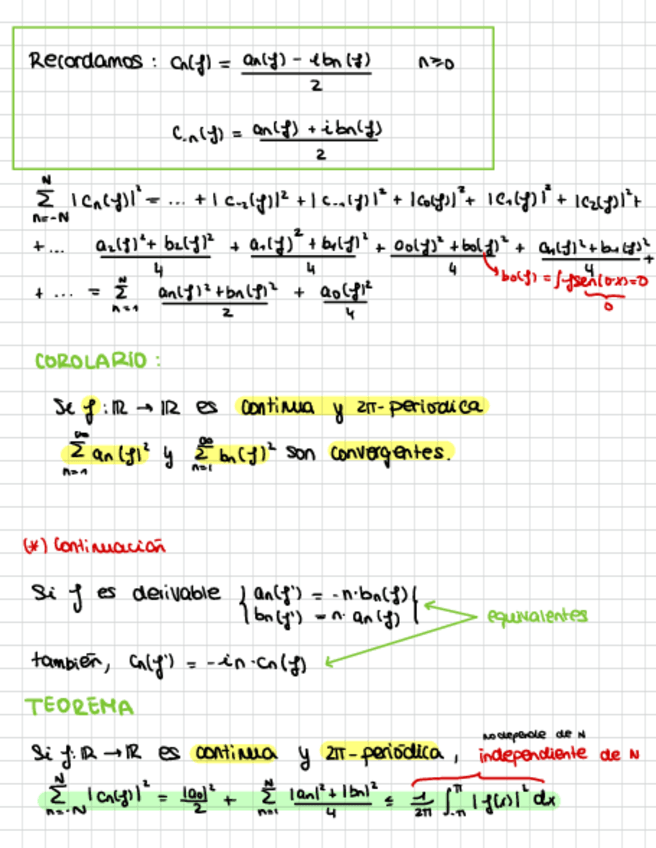 Recordamos : Cn(f) = (an(f) - ibn(f))/2   n≥0
C-n(f) = (an(f) + ibn(f))/2
∑_{n=-N}^{N} |Cn(f)|² = ... + |C-2(f)|² + |C-1(f)|² + |C0(f)|² + |C1(f)|² + |C2(f)|² +
+ ... (a2(f)² + b2(f)²)/4 + (a1(f)² + b1(f)²)/4 + (a0(f)² + b0(f)²)/4 + (a1(f)² + b1(f)²)/4 +
b0(f) = ∫f sen(0·x) = 0
0
+ ... = ∑_{n=1}^{N} (an(f)² + bn(f)²)/2 + a0(f)²/4
COROLARIO :
Se f : ℝ → ℝ es continua y 2π-periodica
∑_{n=1}^{∞} an(f)² y ∑_{n=1}^{∞} bn(f)² son convergentes.
(*) Continuación
Si f es derivable { an(f') = -n·bn(f)
bn(f') = n·an(f) }
equivalentes
también, Cn(f') = -in·Cn(f)
TEOREMA
no depende de N
Si f: ℝ → ℝ es continua y 2π-periódica , independiente de N
∑_{n=-N}^{N} |Cn(f)|² = |a0|²/2 + ∑_{n=1}^{N} (|an|² + |bn|²)/4 ≤ 1/2π ∫_{-π}^{π} |f(x)|² dx